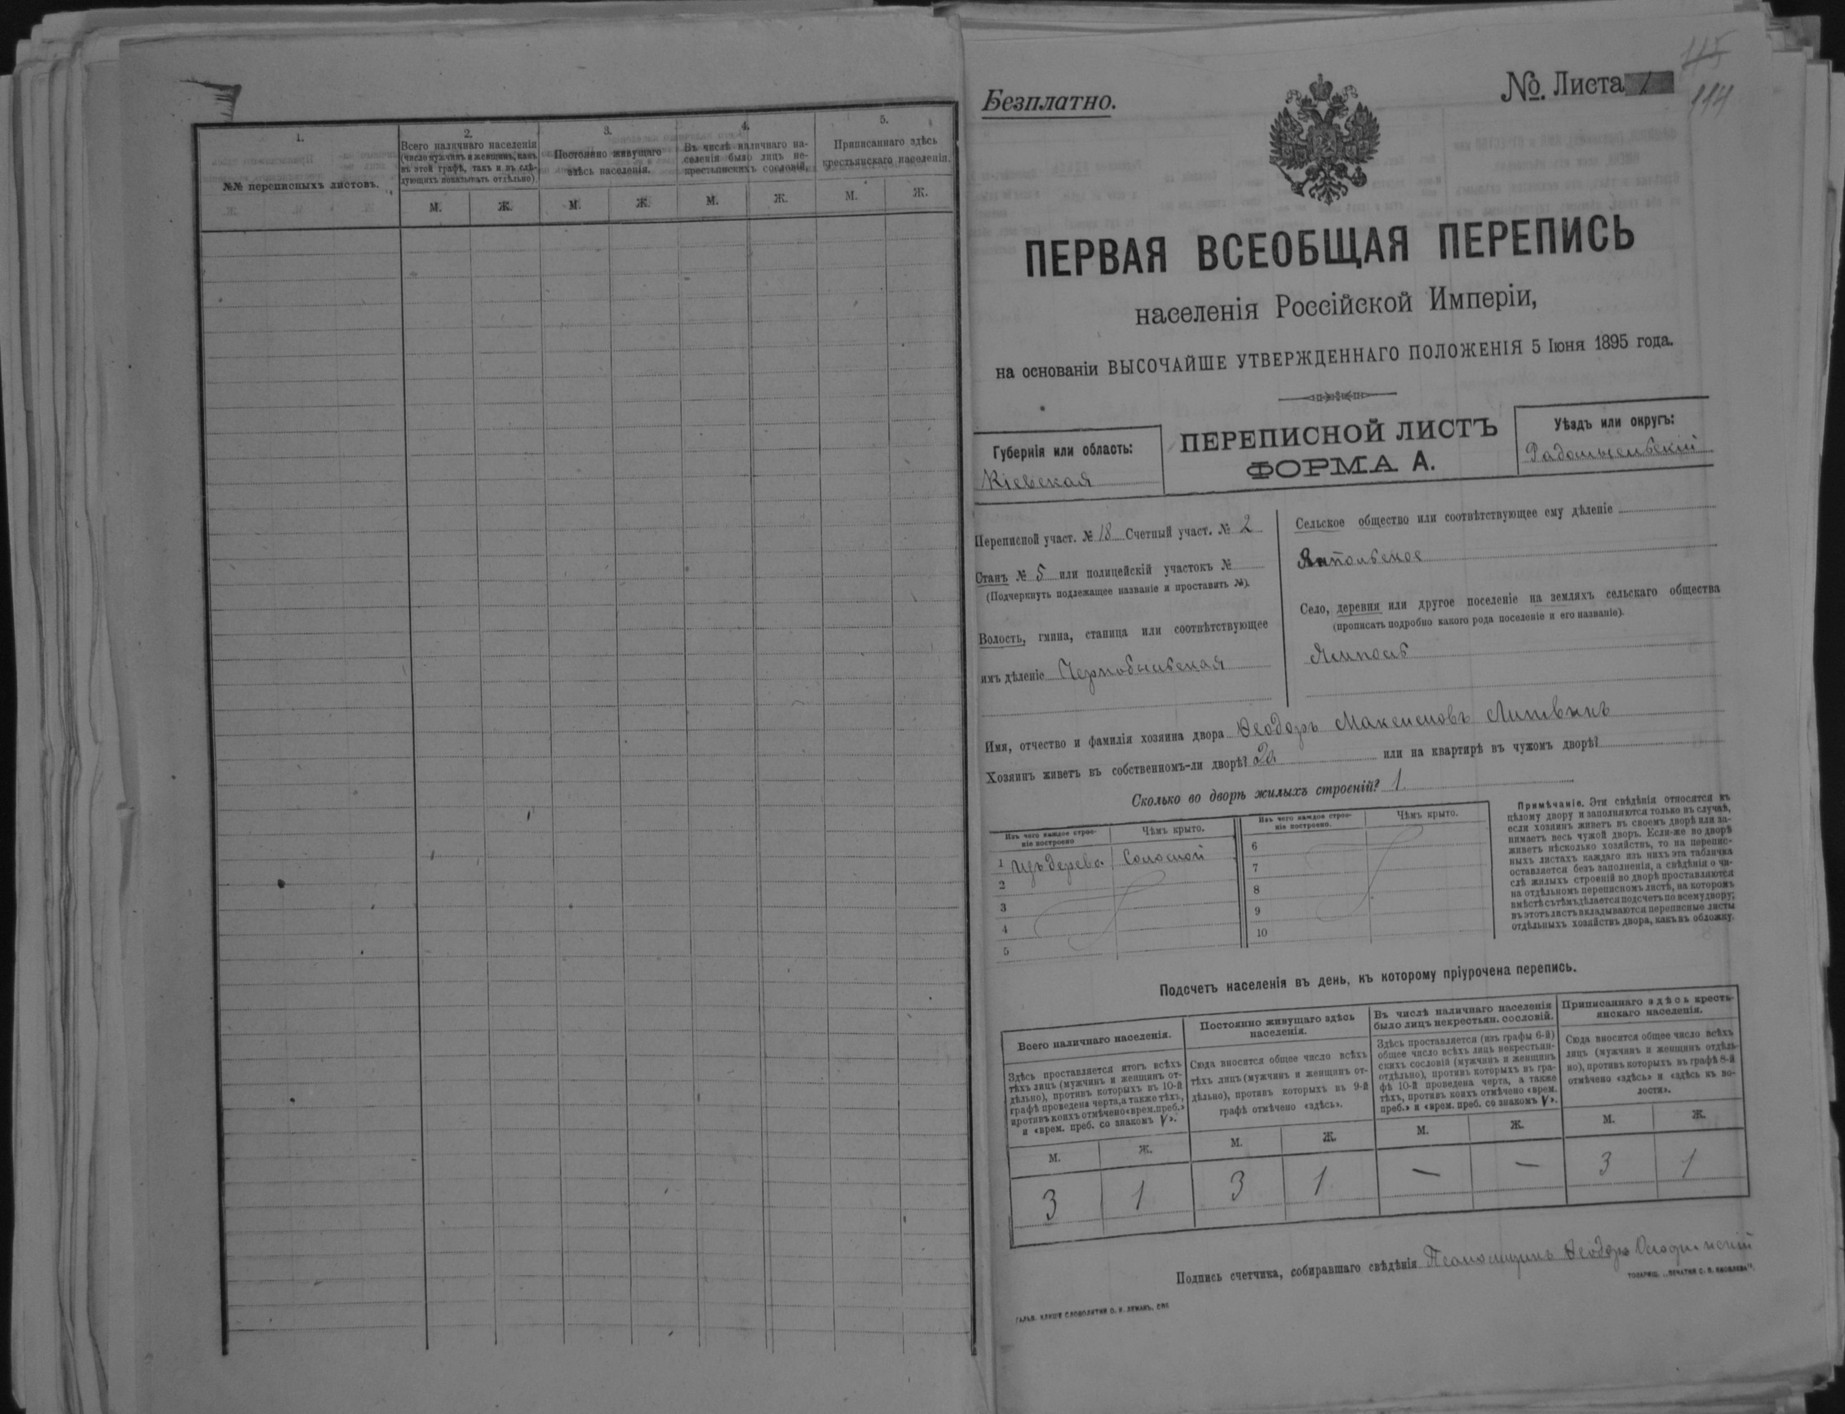 1.
№№ переписныхъ листовъ.
2.
Всего наличнаго населенія
(число мужчинъ и женщинъ, какъ
въ этой графѣ, такъ и въ слѣ-
дующихъ показывать отдѣльно)
3.
Постоянно живущаго
здѣсь населенія.
4.
Въ числѣ наличнаго на-
селенія было лицъ не-
крестьянскихъ сословій.
5.
Приписаннаго здѣсь
крестьянскаго населенія.
М. Ж. М. Ж. М. Ж. М. Ж.
115
114
Безплатно.
№. Листа 1
ПЕРВАЯ ВСЕОБЩАЯ ПЕРЕПИСЬ
населенія Россійской Имперіи,
на основаніи ВЫСОЧАЙШЕ УТВЕРЖДЕННАГО ПОЛОЖЕНІЯ 5 Іюня 1895 года.
Губернія или область:
Кіевская
ПЕРЕПИСНОЙ ЛИСТЪ
ФОРМА А.
Уѣздъ или округъ:
Радомысльскій
Переписной участ. № 18 Счетный участ. № 2
Станъ № 5 или полицейскій участокъ №
(Подчеркнуть подлежащее названіе и проставить №).
Волость, гмина, станица или соотвѣтствующее
имъ дѣленіе Чернобыльская
Сельское общество или соотвѣтствующее ему дѣленіе
Ямпольское
Село, деревня или другое поселеніе на земляхъ сельскаго общества
(прописать подробно какого рода поселеніе и его названіе).
Ямполь
Имя, отчество и фамилія хозяина двора Ѳеодоръ Максимовъ Литвинъ
Хозяинъ живетъ въ собственномъ-ли дворѣ? Да или на квартирѣ въ чужомъ дворѣ?
Сколько во дворѣ жилыхъ строеній? 1.
Изъ чего каждое строе-
ніе построено
Чѣмъ крыто.
Изъ чего каждое строе-
ніе построено.
Чѣмъ крыто.
1 Изъ дерева Соломой
2
3
4
5
6
7
8
9
10
Примѣчаніе. Эти свѣдѣнія относятся къ
цѣлому двору и заполняются только въ случаѣ,
если хозяинъ живетъ въ своемъ дворѣ или за-
нимаетъ весь чужой дворъ. Если-же во дворѣ
живетъ нѣсколько хозяйствъ, то на перепис-
ныхъ листахъ каждаго изъ нихъ эта табличка
оставляется безъ заполненія, а свѣдѣнія о чи-
слѣ жилыхъ строеній во дворѣ проставляются
на отдѣльномъ переписномъ листѣ, на которомъ
вмѣстѣ съ тѣмъ дѣлается подсчетъ по всему двору;
въ этотъ листъ вкладываются переписные листы
отдѣльныхъ хозяйствъ двора, какъ въ обложку.
Подсчетъ населенія въ день, къ которому пріурочена перепись.
Всего наличнаго населенія.
Здѣсь проставляется итогъ всѣхъ
тѣхъ лицъ (мужчинъ и женщинъ от-
дѣльно), противъ которыхъ въ 10-й
графѣ проведена черта, а также тѣхъ,
противъ коихъ отмѣчено «врем. преб.»
и «врем. преб. со знакомъ V».
Постоянно живущаго здѣсь
населенія.
Сюда вносится общее число всѣхъ
тѣхъ лицъ (мужчинъ и женщинъ от-
дѣльно), противъ которыхъ въ 9-й
графѣ отмѣчено «здѣсь».
Въ числѣ наличнаго населенія
было лицъ некрестьян. сословій.
Здѣсь проставляется (изъ графы 6-й)
общее число всѣхъ лицъ некрестьян-
скихъ сословій (мужчинъ и женщинъ
отдѣльно), противъ которыхъ въ гра-
фѣ 10-й проведена черта, а также
тѣхъ, противъ коихъ отмѣчено «врем.
преб.» и «врем. преб. со знакомъ V».
Приписаннаго здѣсь кресть-
янскаго населенія.
Сюда вносится общее число всѣхъ
лицъ (мужчинъ и женщинъ отдѣль-
но), противъ которыхъ въ графѣ 8-й
отмѣчено «здѣсь» и «здѣсь въ во-
лости».
М. Ж. М. Ж. М. Ж. М. Ж.
3 1 3 1 — — 3 1
Подпись счетчика, собиравшаго свѣдѣнія Псаломщикъ Ѳеодоръ
ТОВАРИЩ. „ПЕЧАТНЯ С. П. ЯКОВЛЕВА“.
ГАЛЬВ. КЛИШЕ СЛОВОЛИТНИ О. И. ЛЕМАНЪ, СПБ